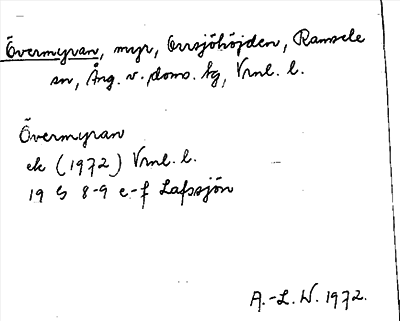 Övermyran, myr, Orrsjöhöjden, Ramsele
sn, Ång. v. doms. tg, Vrnl. l.
Övermyran
ek (1972) Vrnl. l.
19 G 8-9 e-f Lafssjön
A.-L. W. 1972.